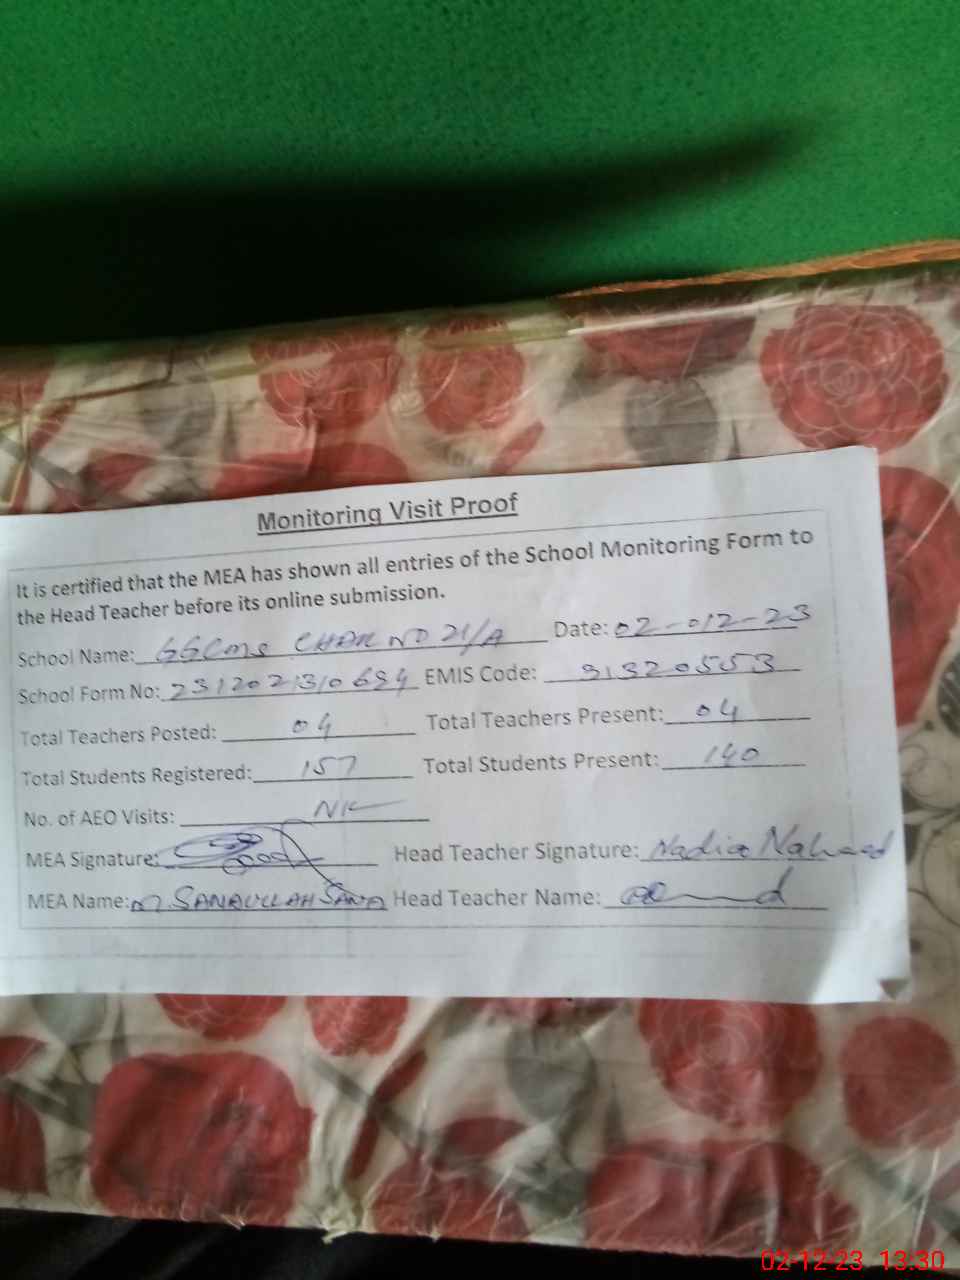 Monitoring Visit Proof
It is certified that the MEA has shown all entries of the School Monitoring Form to
the Head Teacher before its online submission.
School Name: GGCMS CHAK NO 21/A Date: 02-012-23
School Form No: 2312021310684 EMIS Code: 31320553
Total Teachers Posted: 04 Total Teachers Present: 04
Total Students Registered: 157 Total Students Present: 140
No. of AEO Visits: Nil
MEA Signature: Head Teacher Signature: Nadia Naheed
MEA Name: M. SANAULLAH SANA Head Teacher Name:
02-12-23 13:30